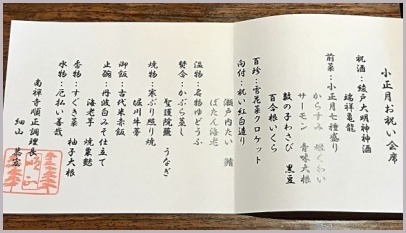 小正月お祝い会席
祝酒:綾戸大明神神酒
瑞祥亀龍
前菜:小正月七種盛り
からすみ 銀くわい
サーモン 青味大根
数の子わさび 黒豆
百合根いくら
百珍:雪花菜クロケット
向付:祝い紅白造り
瀬戸内たい 鮪
ぼたん海老
温物:名物ゆどうふ
焚合:かぶら蒸し
聖護院蕪 うなぎ
焼物:寒ぶり照り焼
堀川牛蒡
御飯:古代米赤飯
止椀:丹波白みそ仕立て
海老芋 焼粟麩
香物:すぐき菜 柚子大根
水物:厄払い善哉
南禅寺順正調理長
細山